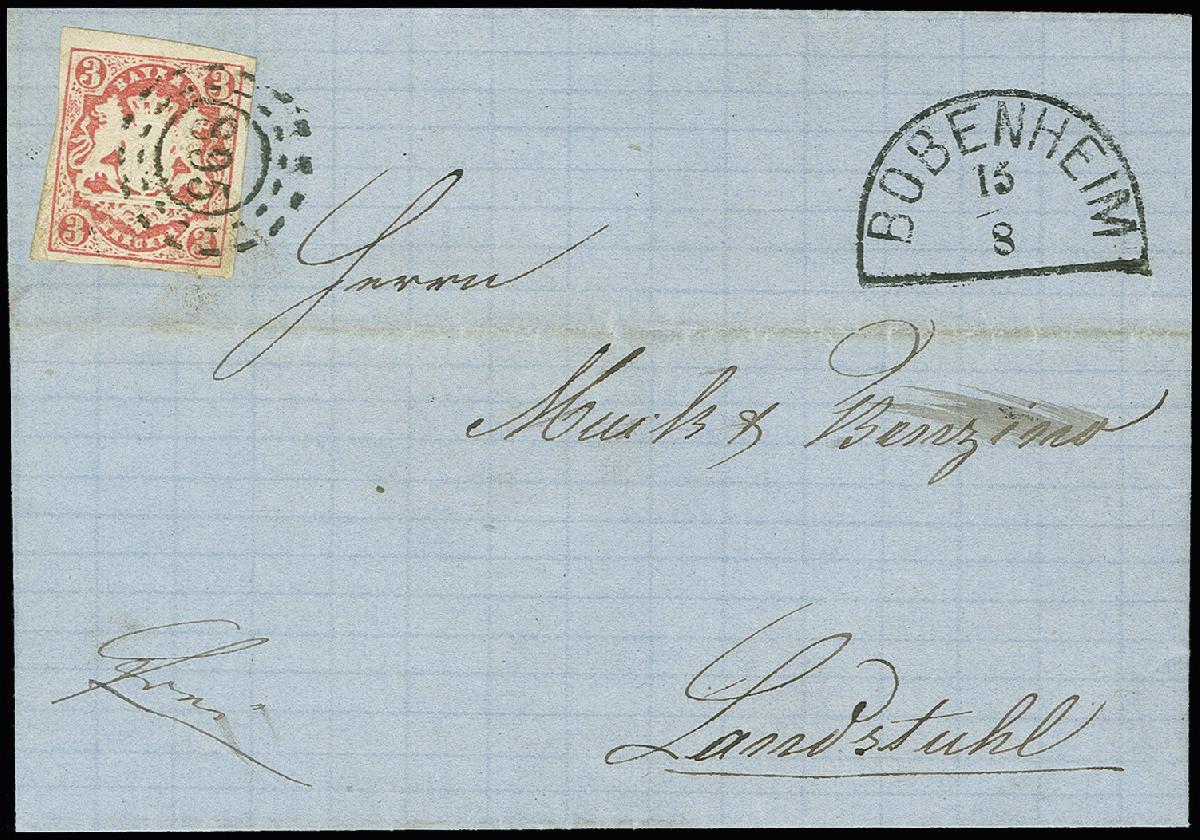 3 BAYERN 3
895
3 3
BOBENHEIM
15
8
Herrn
Muck & Benzino
Landstuhl
Frei